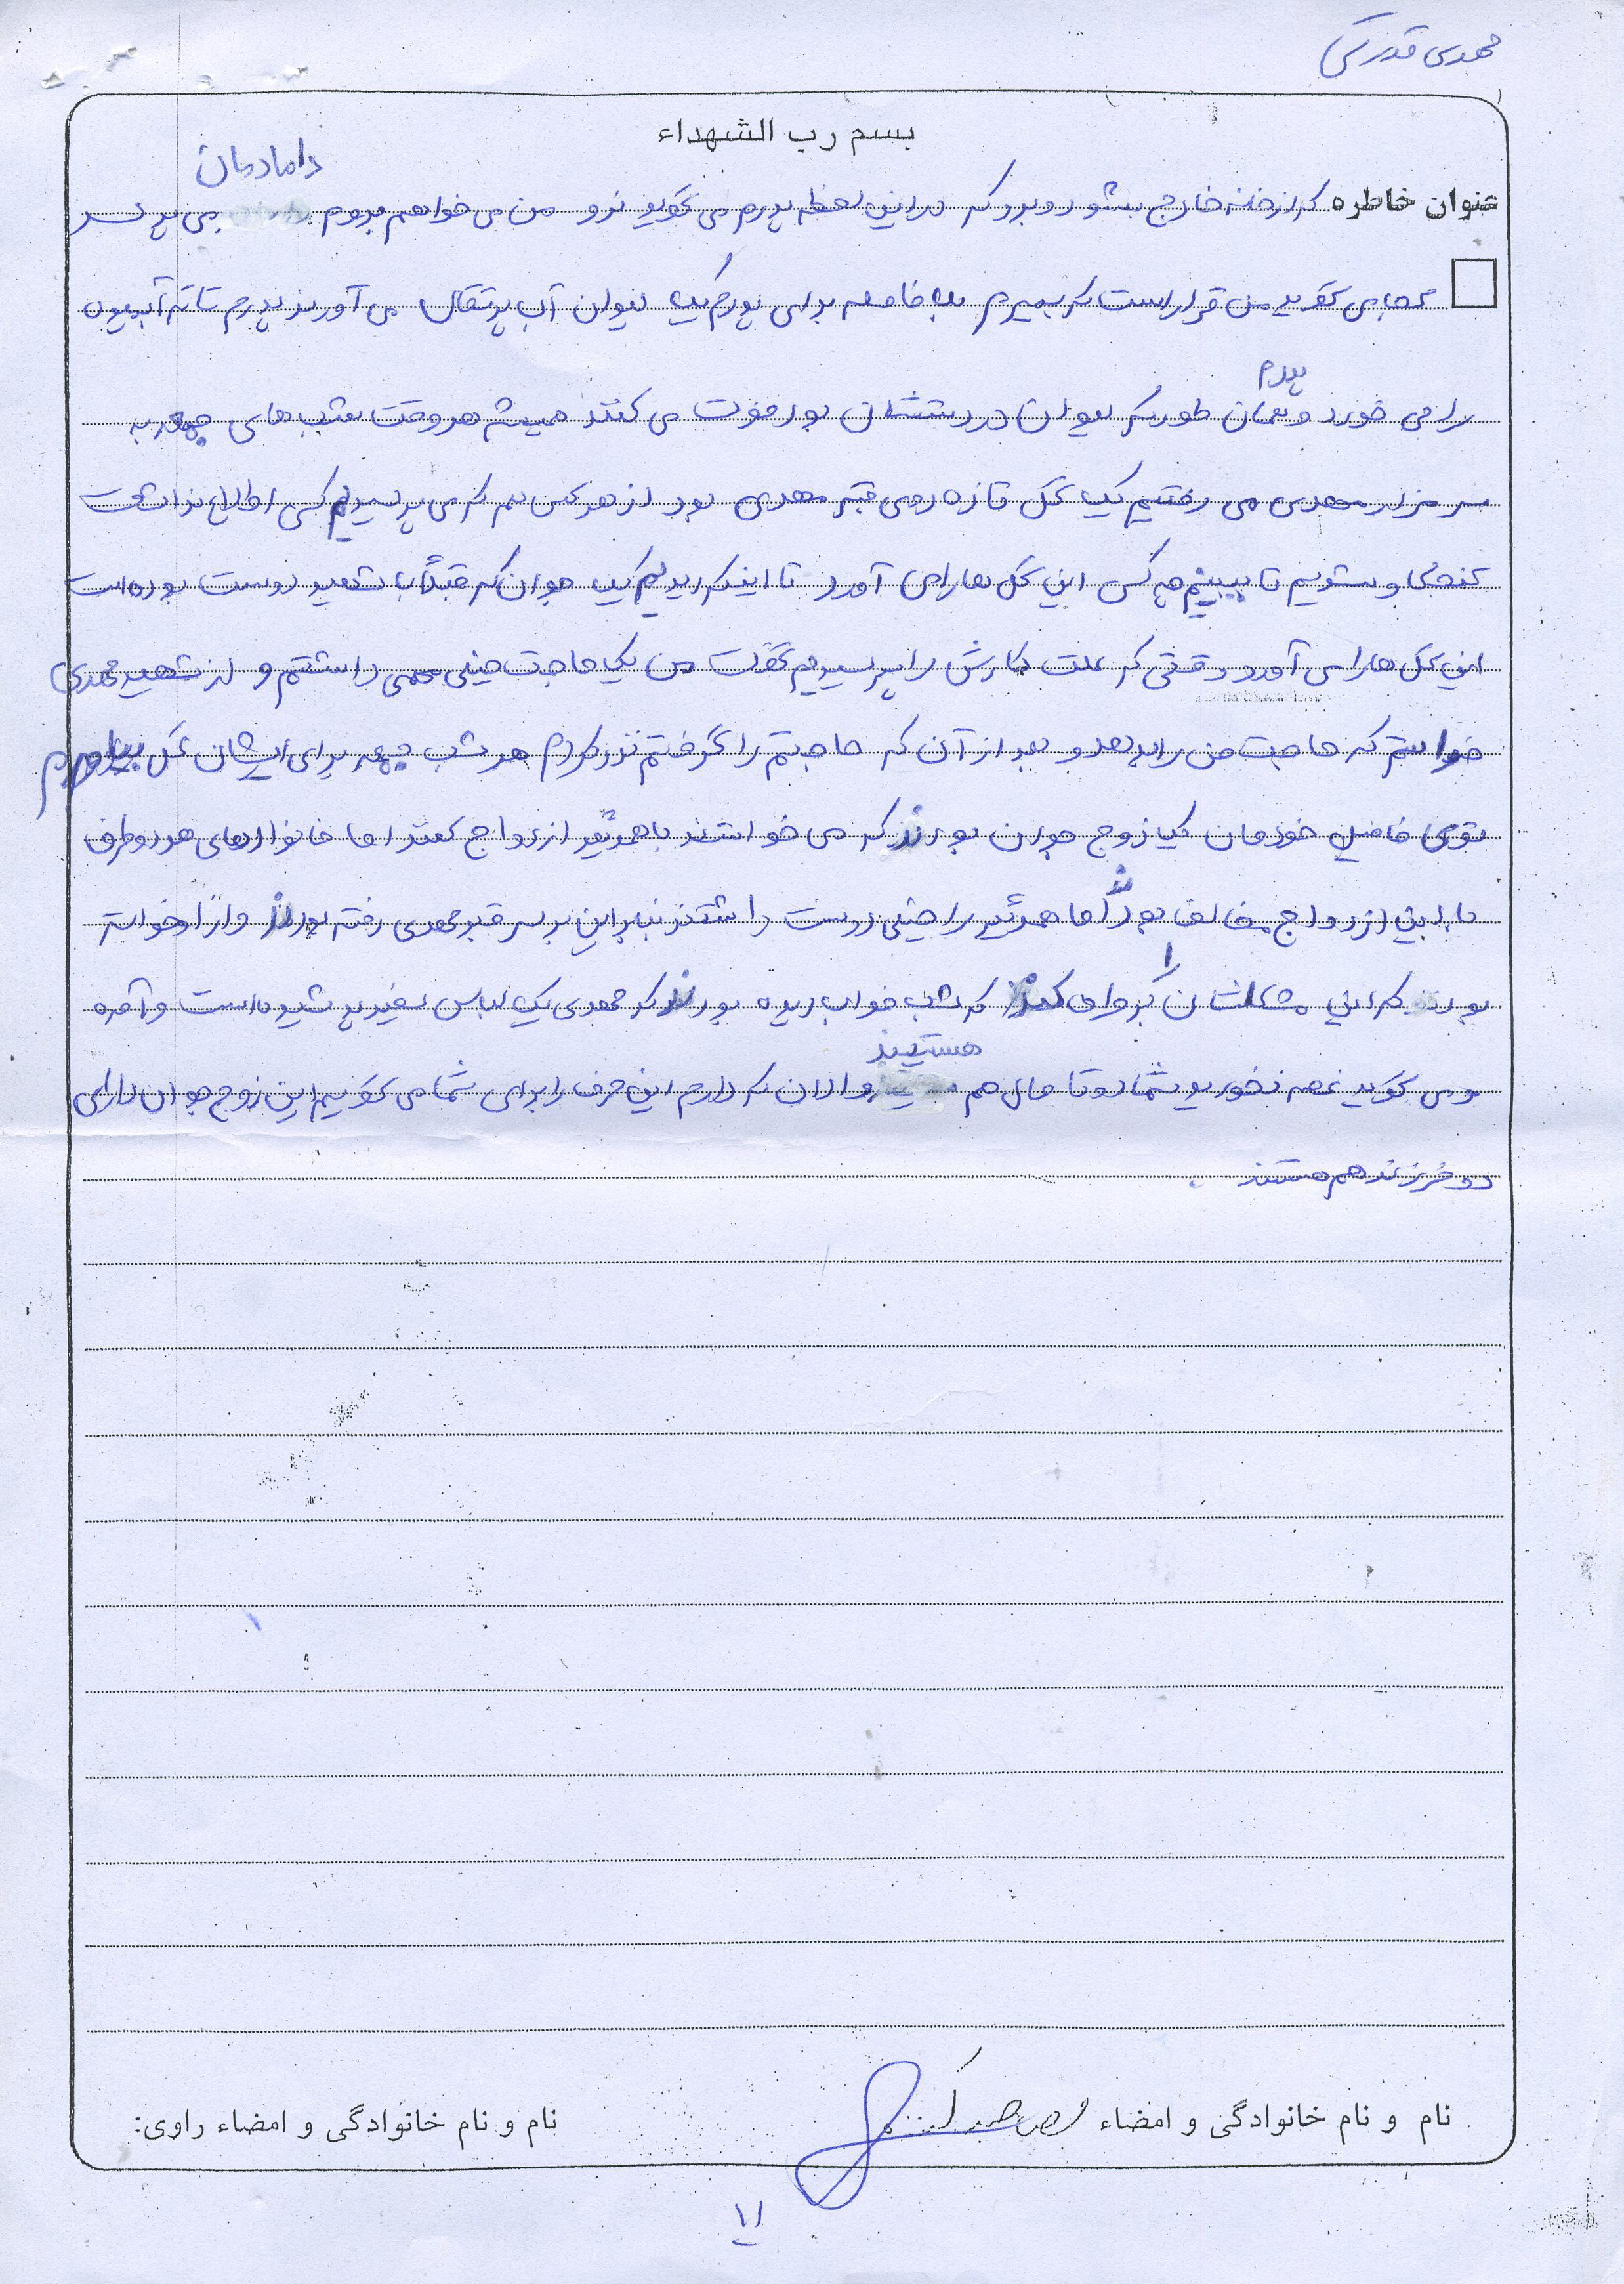 مهدی قدرتی
بسم رب الشهداء
دامادمان
عنوان خاطره که از خانه خارج بشود و برود که در این لحظه پدرم می گوید نرو من می خواهم بروم می پرسد
کجا می گوید من قرار است که بمیرم بلافاصله برای پدرم یک لیوان آب پرتقال می آورند پدرم تا ته آبمیوه
پدرم
را می خورد و همان طور که لیوان در دستشان بود فوت می کنند همیشه هر وقت شب های جمعه به
سر مزار مهدی می رفتیم یک گل تازه روی قبر مهدی بود از هر کس هم که می پرسیدیم کسی اطلاع نداشت
کنجکاو شویم تا ببینیم چه کسی این گل ها را می آورد تا اینکه دیدیم یک جوان که قبلاً با شهید دوست بوده است
این گل ها را می آورد وقتی که علت کارش را پرسیدیم گفت من یک حاجت خیلی مهمی داشتم و از شهید مهدی
خواستم که حاجت من را بدهد و بعد از آن که حاجتم را گرفتم نذر کردم هر شب جمعه برای ایشان گل بیاورم
توی فامیل خودمان یک زوج جوان بودند که می خواستند با همدیگر ازدواج کنند اما خانواده های هر دو طرف
با این ازدواج مخالف بودند اما همدیگر را خیلی دوست داشتند بنابراین بر سر قبر مهدی رفته بودند و از او خواسته
بودند که این مشکلشان را برطرف کند که شب خواب دیده بودند که مهدی یک لباس سفید پوشیده است و آمده
هستید
و می گوید غصه نخورید شما دوتا مال هم و الان که دارم این حرف را برای شما می گویم این زوج جوان دارای
دو فرزند هم هستند .
نام و نام خانوادگی و امضاء
نام و نام خانوادگی و امضاء راوی: